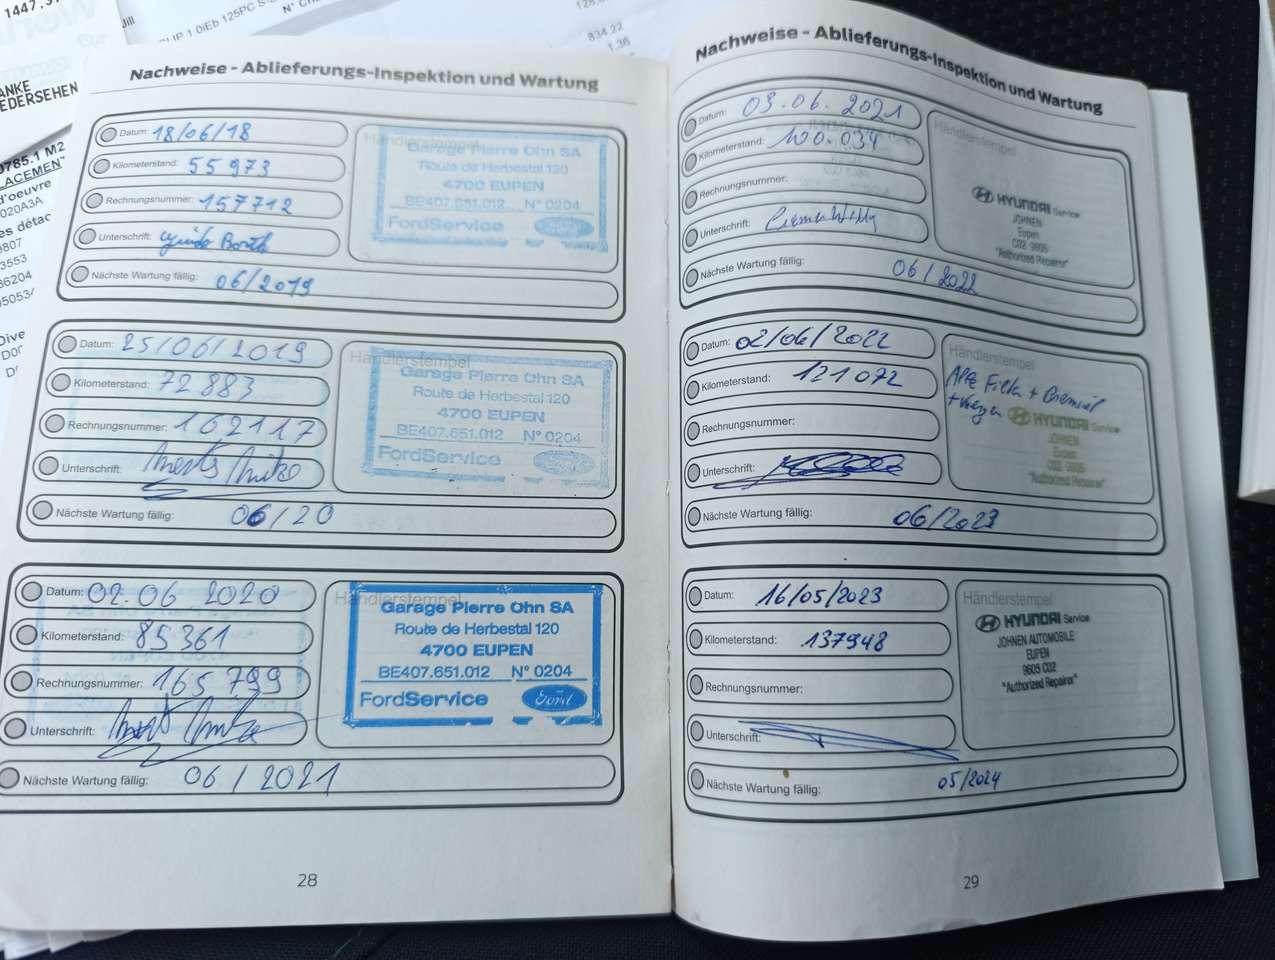 1447.
Jill
1.0iEb 125PC S
834.22
ANKE
EDERSEHEN
0785.1 M2
LACEMEN
d'oeuvre
020A3A
es détac
9807
3553
86204
05053
Dive
Nachweise - Ablieferungs-Inspektion und Wartung
Datum: 18/06/18
Kilometerstand: 55973
Rechnungsnummer: 157712
Unterschrift:
Nächste Wartung fällig: 06/2019
Händlerstempel
Garage Pierre Ohn SA
Route de Herbestal 120
4700 EUPEN
BE407.651.012 N° 0204
FordService Ford
Datum: 25/06/2019
Kilometerstand: 72883
Rechnungsnummer: 162117
Unterschrift:
Nächste Wartung fällig: 06/20
Händlerstempel
Garage Pierre Ohn SA
Route de Herbestal 120
4700 EUPEN
BE407.651.012 N° 0204
FordService
Datum: 02.06 2020
Kilometerstand: 85361
Rechnungsnummer: 165799
Unterschrift:
Nächste Wartung fällig: 06/2021
Händlerstempel
Garage Pierre Ohn SA
Route de Herbestal 120
4700 EUPEN
BE407.651.012 N° 0204
FordService Ford
28
Nachweise - Ablieferungs-Inspektion und Wartung
Datum: 03.06.2021
Kilometerstand: 100.034
Rechnungsnummer:
Unterschrift:
Nächste Wartung fällig: 06/2022
Händlerstempel
HYUNDAI Service
JOHNEN
Eupen
C02 9605
"Authorized Repairer"
Datum: 02/06/2022
Kilometerstand: 121072
Rechnungsnummer:
Unterschrift:
Nächste Wartung fällig: 06/2023
Händlerstempel
Alle Filter +
+
HYUNDAI Service
JOHNEN
Eupen
C02 9605
"Authorized Repairer"
Datum: 16/05/2023
Kilometerstand: 137948
Rechnungsnummer:
Unterschrift:
Nächste Wartung fällig: 05/2024
Händlerstempel
HYUNDAI Service
JOHNEN AUTOMOBILE
EUPEN
9605 C02
"Authorized Repairer"
29